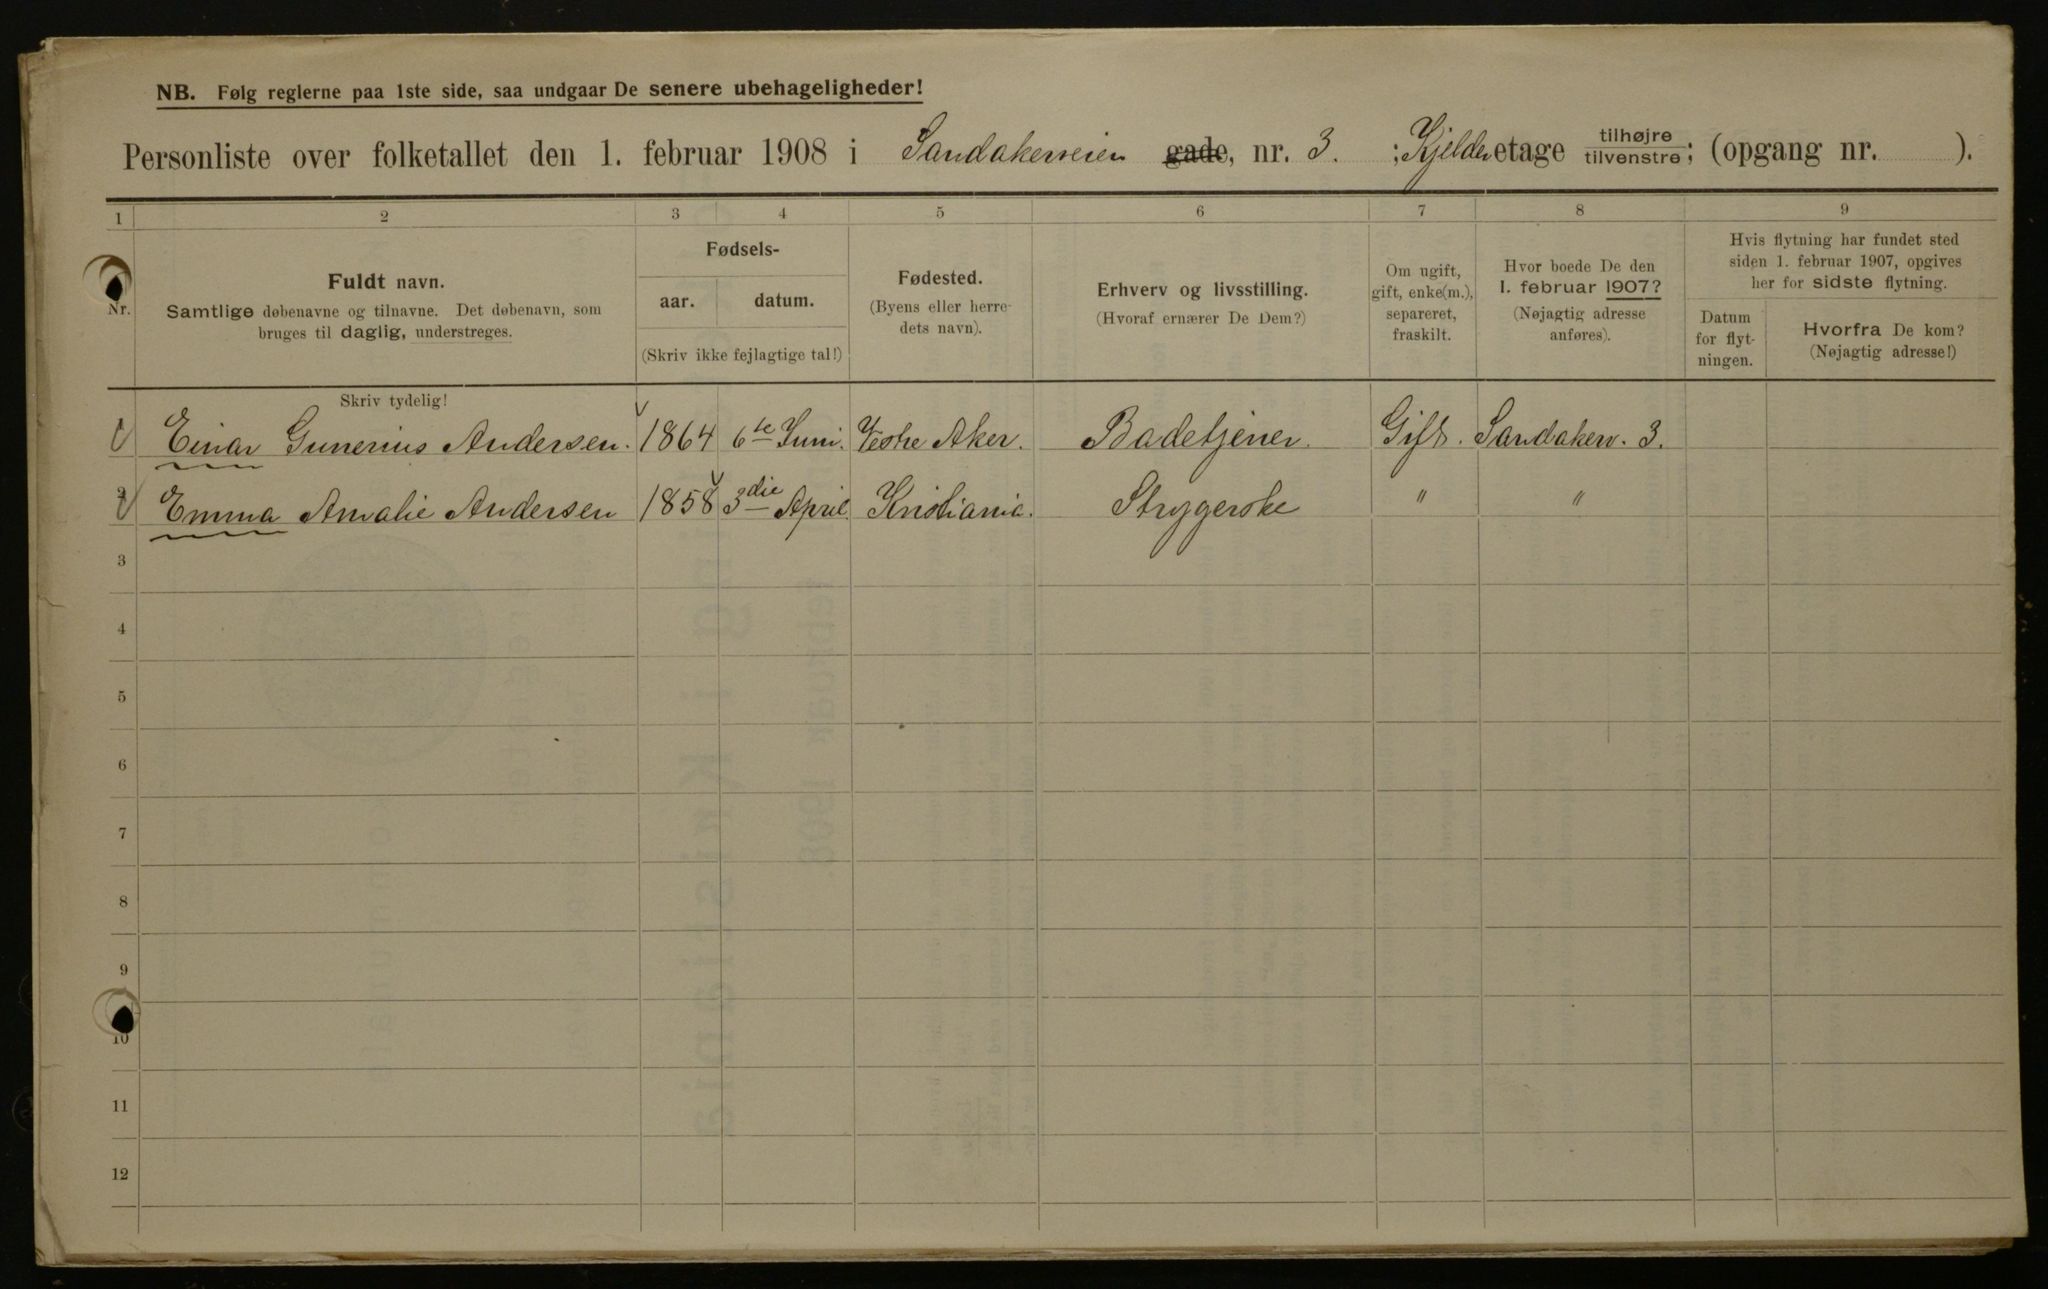 NB. Følg reglerne paa 1ste side, saa undgaar De senere ubehageligheder!
Personliste over folketallet den 1. februar 1908 i Sandakerveien gade, nr. 3. ; Kjelder etage tilhøjre tilvenstre; (opgang nr. ).
1 2 3 4 5 6 7 8 9
Nr.
Fuldt navn.
Samtlige døbenavne og tilnavne. Det døbenavn, som
bruges til daglig, understreges.
Skriv tydelig!
Fødsels-
aar. datum.
(Skriv ikke fejlagtige tal!)
Fødested.
(Byens eller herre-
dets navn).
Erhverv og livsstilling.
(Hvoraf ernærer De Dem?)
Om ugift,
gift, enke(m.),
separeret,
fraskilt.
Hvor boede De den
1. februar 1907?
(Nøjagtig adresse
anføres).
Hvis flytning har fundet sted
siden 1. februar 1907, opgives
her for sidste flytning.
Datum
for flyt-
ningen.
Hvorfra De kom?
(Nøjagtig adresse!)
1 Einar Gunerius Andersen. 1864 6te Juni. Vestre Aker. Badetjener. Gift. Sandakerv. 3.
2 Emma Amalie Andersen 1858 3die April. Kristiania. Strygerske " "
3
4
5
6
7
8
9
10
11
12